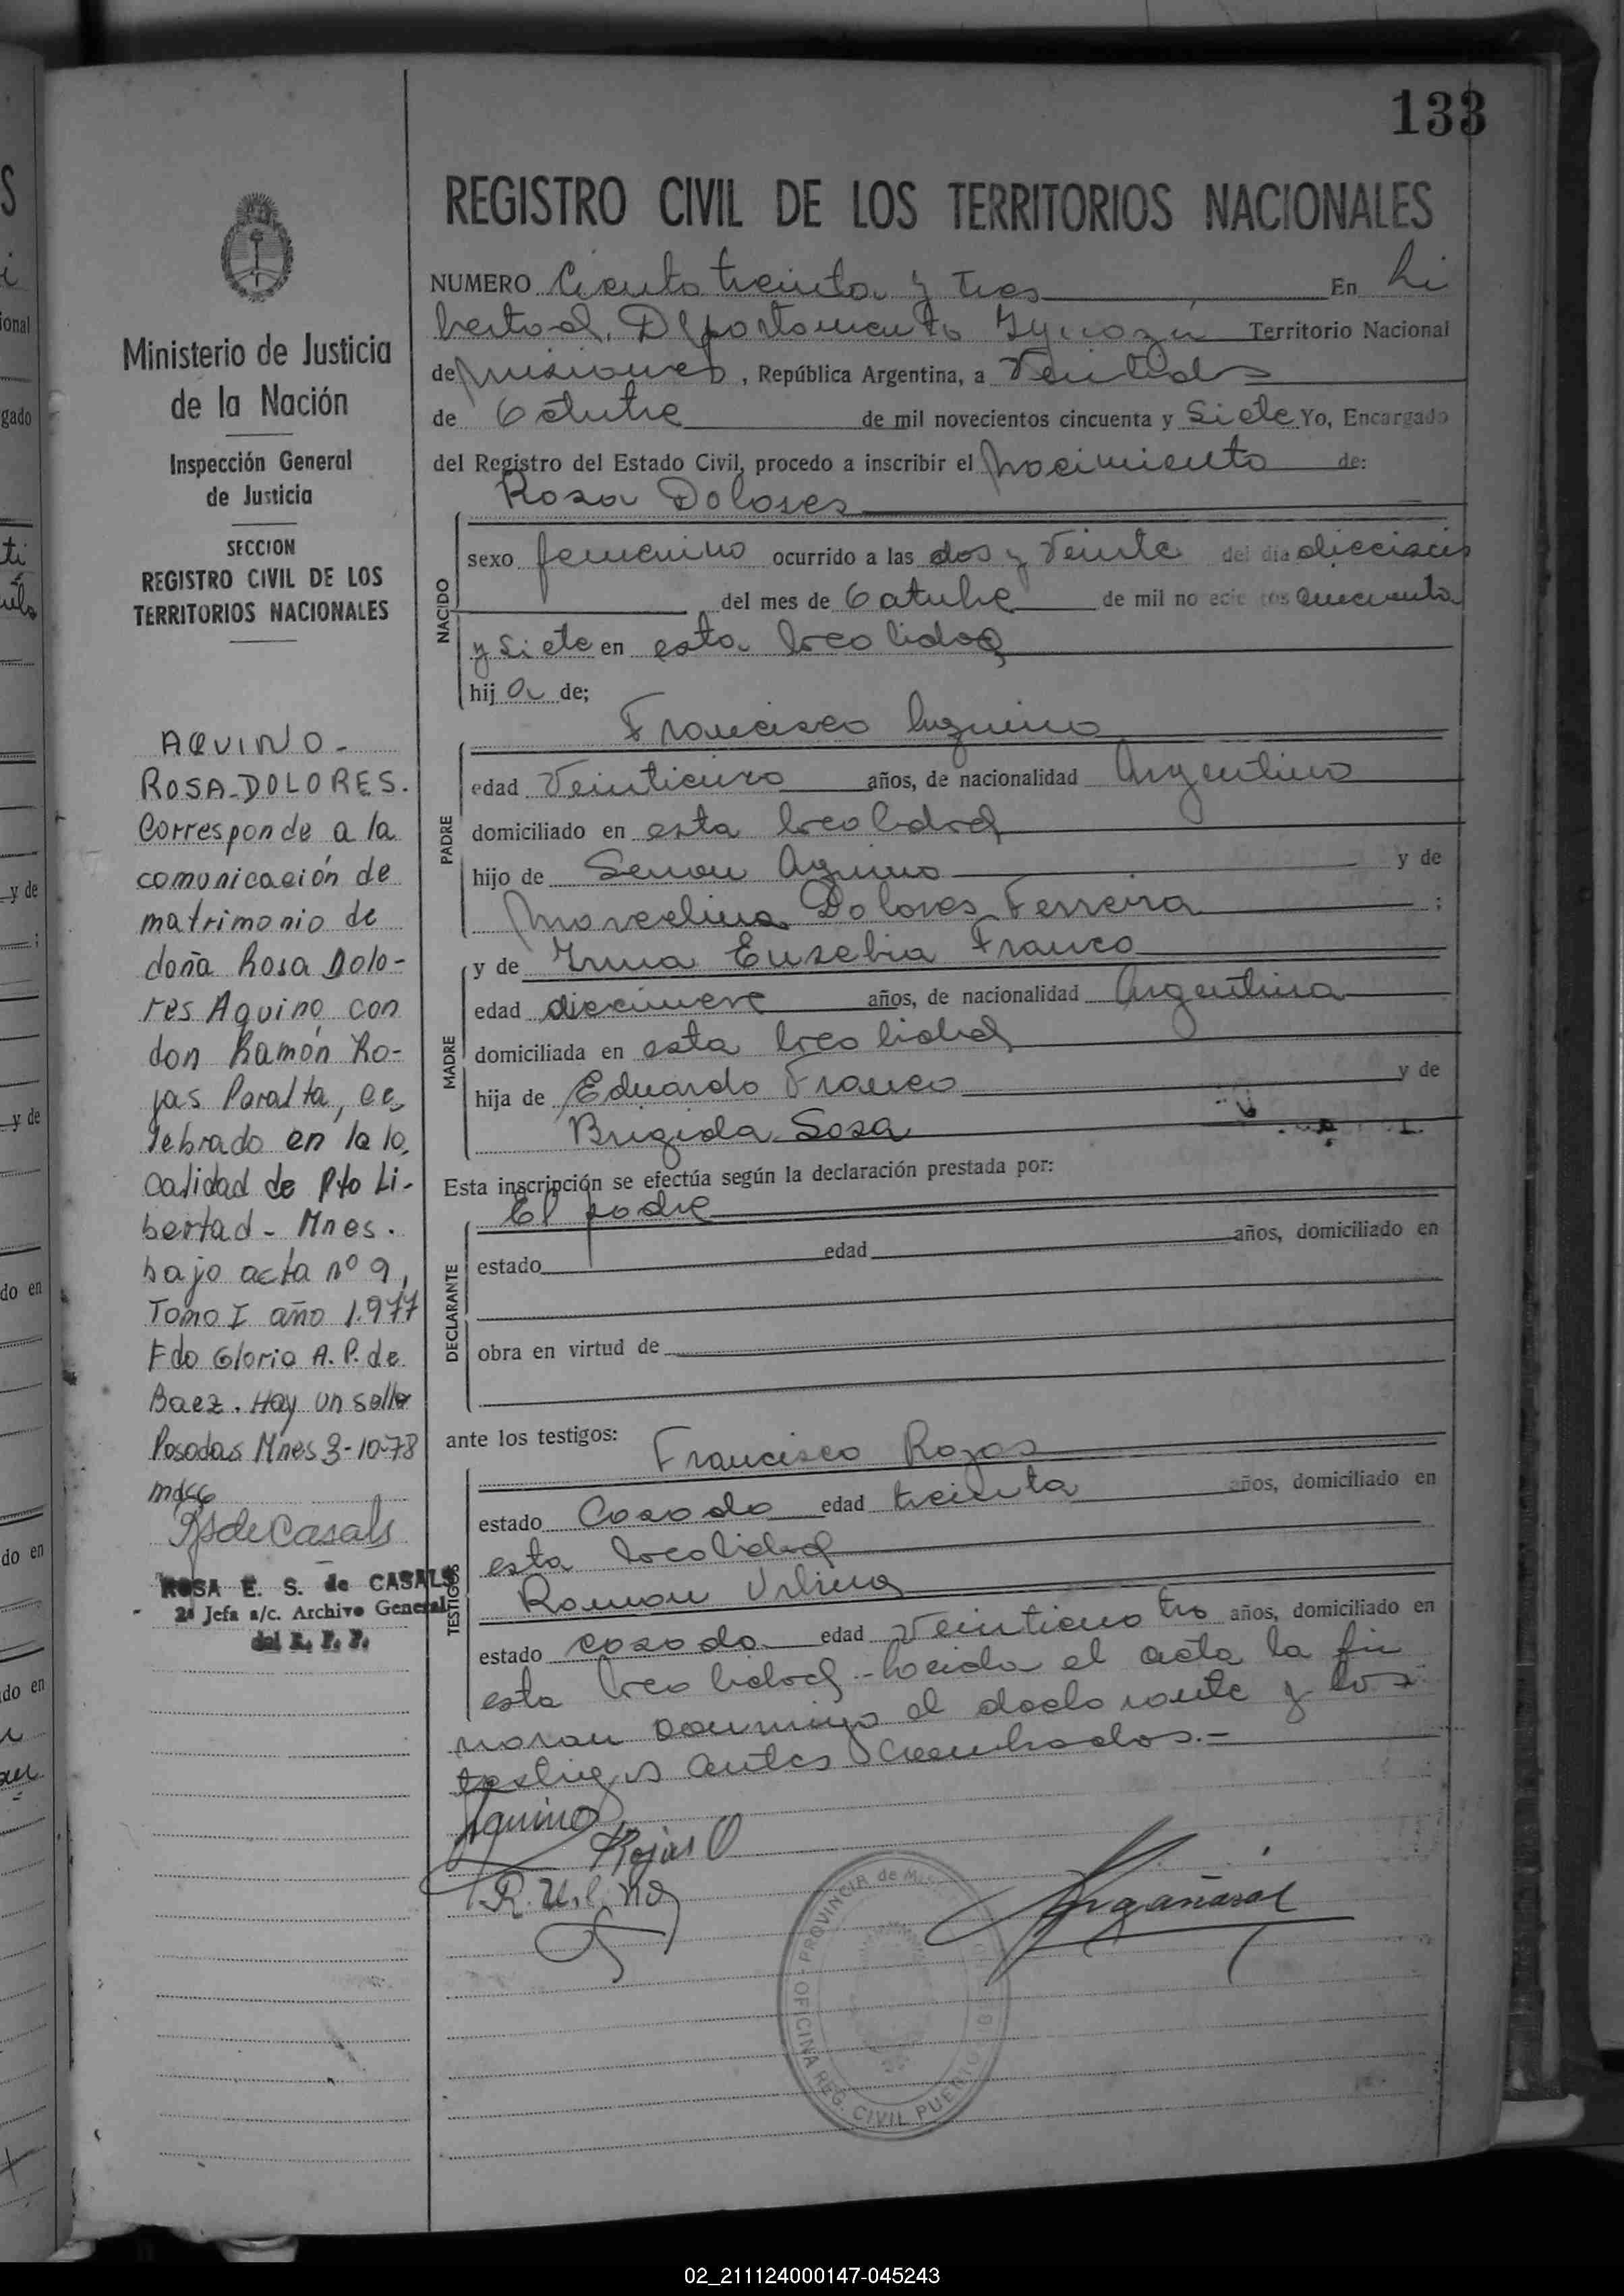 133
REGISTRO CIVIL DE LOS TERRITORIOS NACIONALES
Ministerio de Justicia
de la Nación
Inspección General
de Justicia
SECCION
REGISTRO CIVIL DE LOS
TERRITORIOS NACIONALES
AQUINO-
ROSA-DOLORES.
Corresponde a la
comunicación de
matrimonio de
doña Rosa Dolo-
res Aquino con
don Ramón Ro-
jas Paralta, ce-
lebrado en la lo,
calidad de Pto Li-
bertad - Mnes.
bajo acta nº 9,
Tomo I año 1.977
Fdo Gloria A. P. de
Baez. Hay un sello
Posadas Mnes 3-10-78
RSdeCasals
ROSA E. S. de CASALS
2ª Jefa a/c. Archivo General
del R. P. P.
NUMERO Ciento treinta y tres En Li
bertad, Departamento Iguazú Territorio Nacional
de Misiones, República Argentina, a Veintidos
de Octubre de mil novecientos cincuenta y Siete Yo, Encargado
del Registro del Estado Civil, procedo a inscribir el Nacimiento de:
Rosa Dolores
NACIDO
sexo femenino ocurrido a las dos y Veinte del día dieciseis
del mes de Octubre de mil novecientos cincuenta
y Siete en esta localidad
hija de;
Francisco Aquino
PADRE
edad Veinticinco años, de nacionalidad Argentino
domiciliado en esta localidad
hijo de Senon Aquino y de
Marcelina Dolores Ferreira ;
y de Irma Eusebia Franco
MADRE
edad diecinueve años, de nacionalidad Argentina
domiciliada en esta localidad
hija de Eduardo Franco y de
Brigida Sosa
Esta inscripción se efectúa según la declaración prestada por:
El padre
DECLARANTE
estado edad años, domiciliado en
obra en virtud de
ante los testigos:
Francisco Rojas
TESTIGOS
estado Casado edad treinta años, domiciliado en
esta localidad
Ramon Urlina
estado casado edad Veinticuatro años, domiciliado en
esta localidad - Leida el acta la fir
maron conmigo el declarante y los
testigos antes nombrados.-
Aquino
Rojas O
R. Urlina
Argañaraz
OFICINA REG. CIVIL PUERTO
PROVINCIA de
02_211124000147-045243